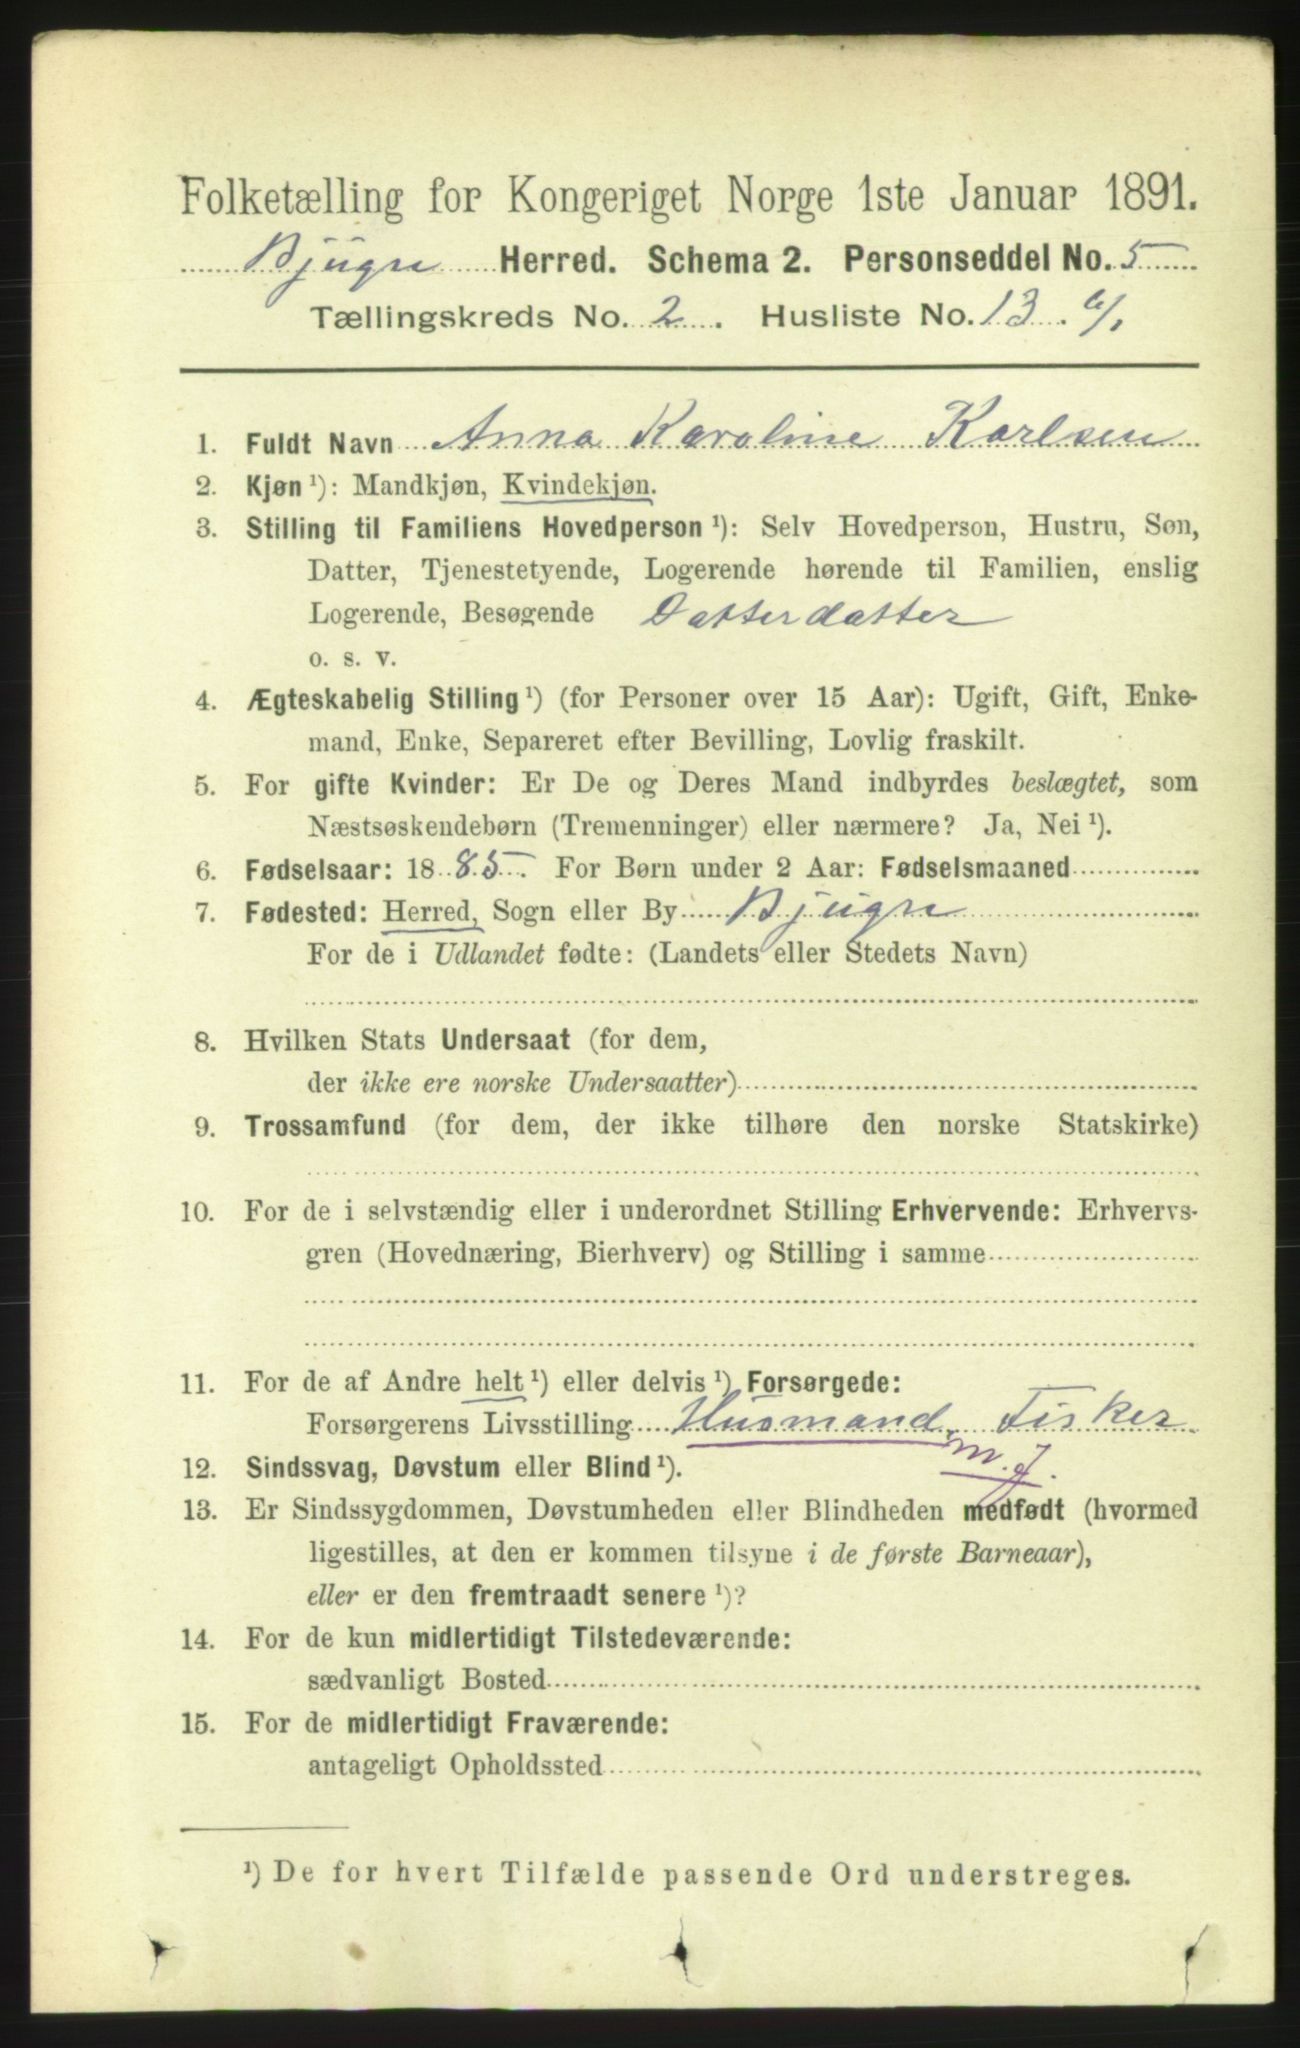 Folketælling for Kongeriget Norge 1ste Januar 1891.
Bjugn Herred. Schema 2. Personseddel No. 5
Tællingskreds No. 2. Husliste No. 13.
1. Fuldt Navn Anna Karoline Karlsen
2. Kjøn ¹): Mandkjøn, Kvindekjøn.
3. Stilling til Familiens Hovedperson ¹): Selv Hovedperson, Hustru, Søn,
Datter, Tjenestetyende, Logerende hørende til Familien, enslig
Logerende, Besøgende Datterdatter
o. s. v.
4. Ægteskabelig Stilling ¹) (for Personer over 15 Aar): Ugift, Gift, Enke-
mand, Enke, Separeret efter Bevilling, Lovlig fraskilt.
5. For gifte Kvinder: Er De og Deres Mand indbyrdes beslægtet, som
Næstsøskendebørn (Tremenninger) eller nærmere? Ja, Nei ¹).
6. Fødselsaar: 1885. For Børn under 2 Aar: Fødselsmaaned
7. Fødested: Herred, Sogn eller By Bjugn
For de i Udlandet fødte: (Landets eller Stedets Navn)
8. Hvilken Stats Undersaat (for dem,
der ikke ere norske Undersaatter)
9. Trossamfund (for dem, der ikke tilhøre den norske Statskirke)
10. For de i selvstændig eller i underordnet Stilling Erhvervende: Erhvervs-
gren (Hovednæring, Bierhverv) og Stilling i samme
11. For de af Andre helt ¹) eller delvis ¹) Forsørgede:
Forsørgerens Livsstilling Husmand, Fisker
m. J.
12. Sindssvag, Døvstum eller Blind ¹).
13. Er Sindssygdommen, Døvstumheden eller Blindheden medfødt (hvormed
ligestilles, at den er kommen tilsyne i de første Barneaar),
eller er den fremtraadt senere ¹)?
14. For de kun midlertidigt Tilstedeværende:
sædvanligt Bosted
15. For de midlertidigt Fraværende:
antageligt Opholdssted
¹) De for hvert Tilfælde passende Ord understreges.